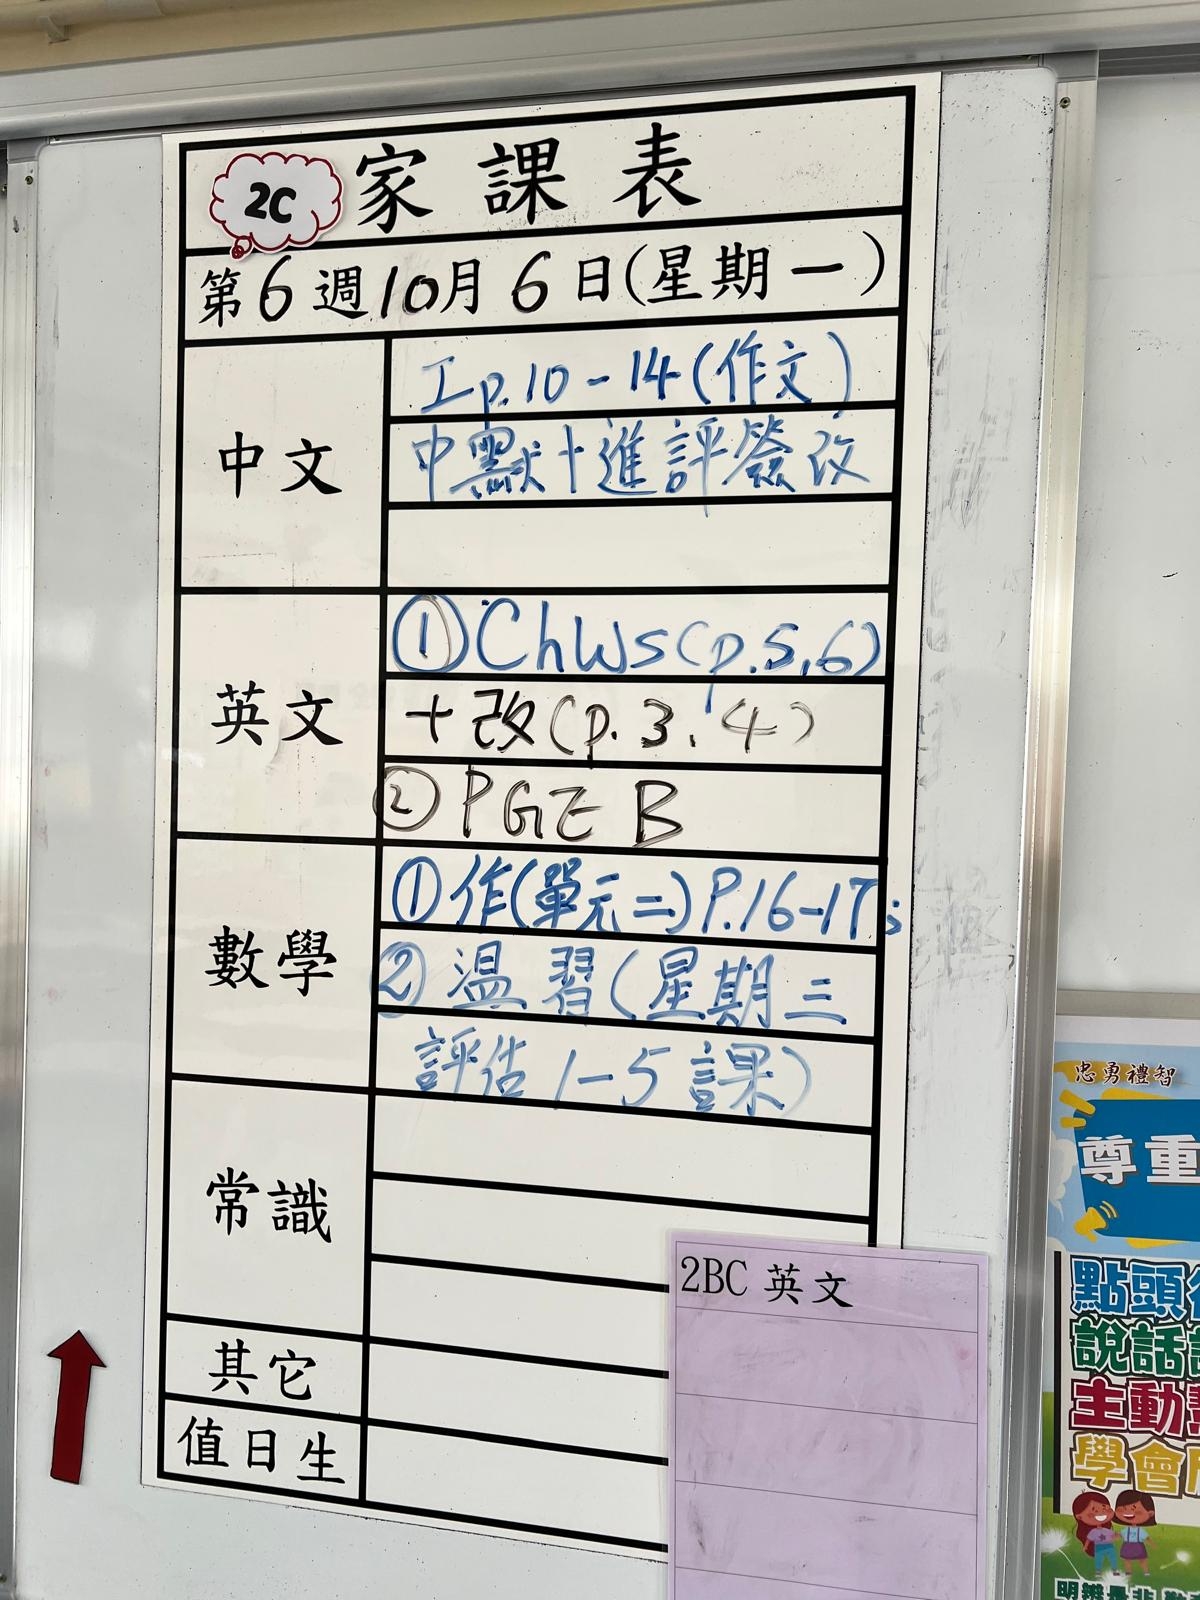 2C 家課表
第6週10月6日(星期一)
中文
工p.10-14(作文)
中默+進評簽改
英文
①ChWs(p.5,6)
+改(p.3,4)
②PGE B
數學
①作(單元二)P.16-17;
②温習(星期三
評估1-5課)
常識
其它
值日生
2BC 英文
忠勇禮智
尊重
點頭
說話
主動
學會
明辨是非